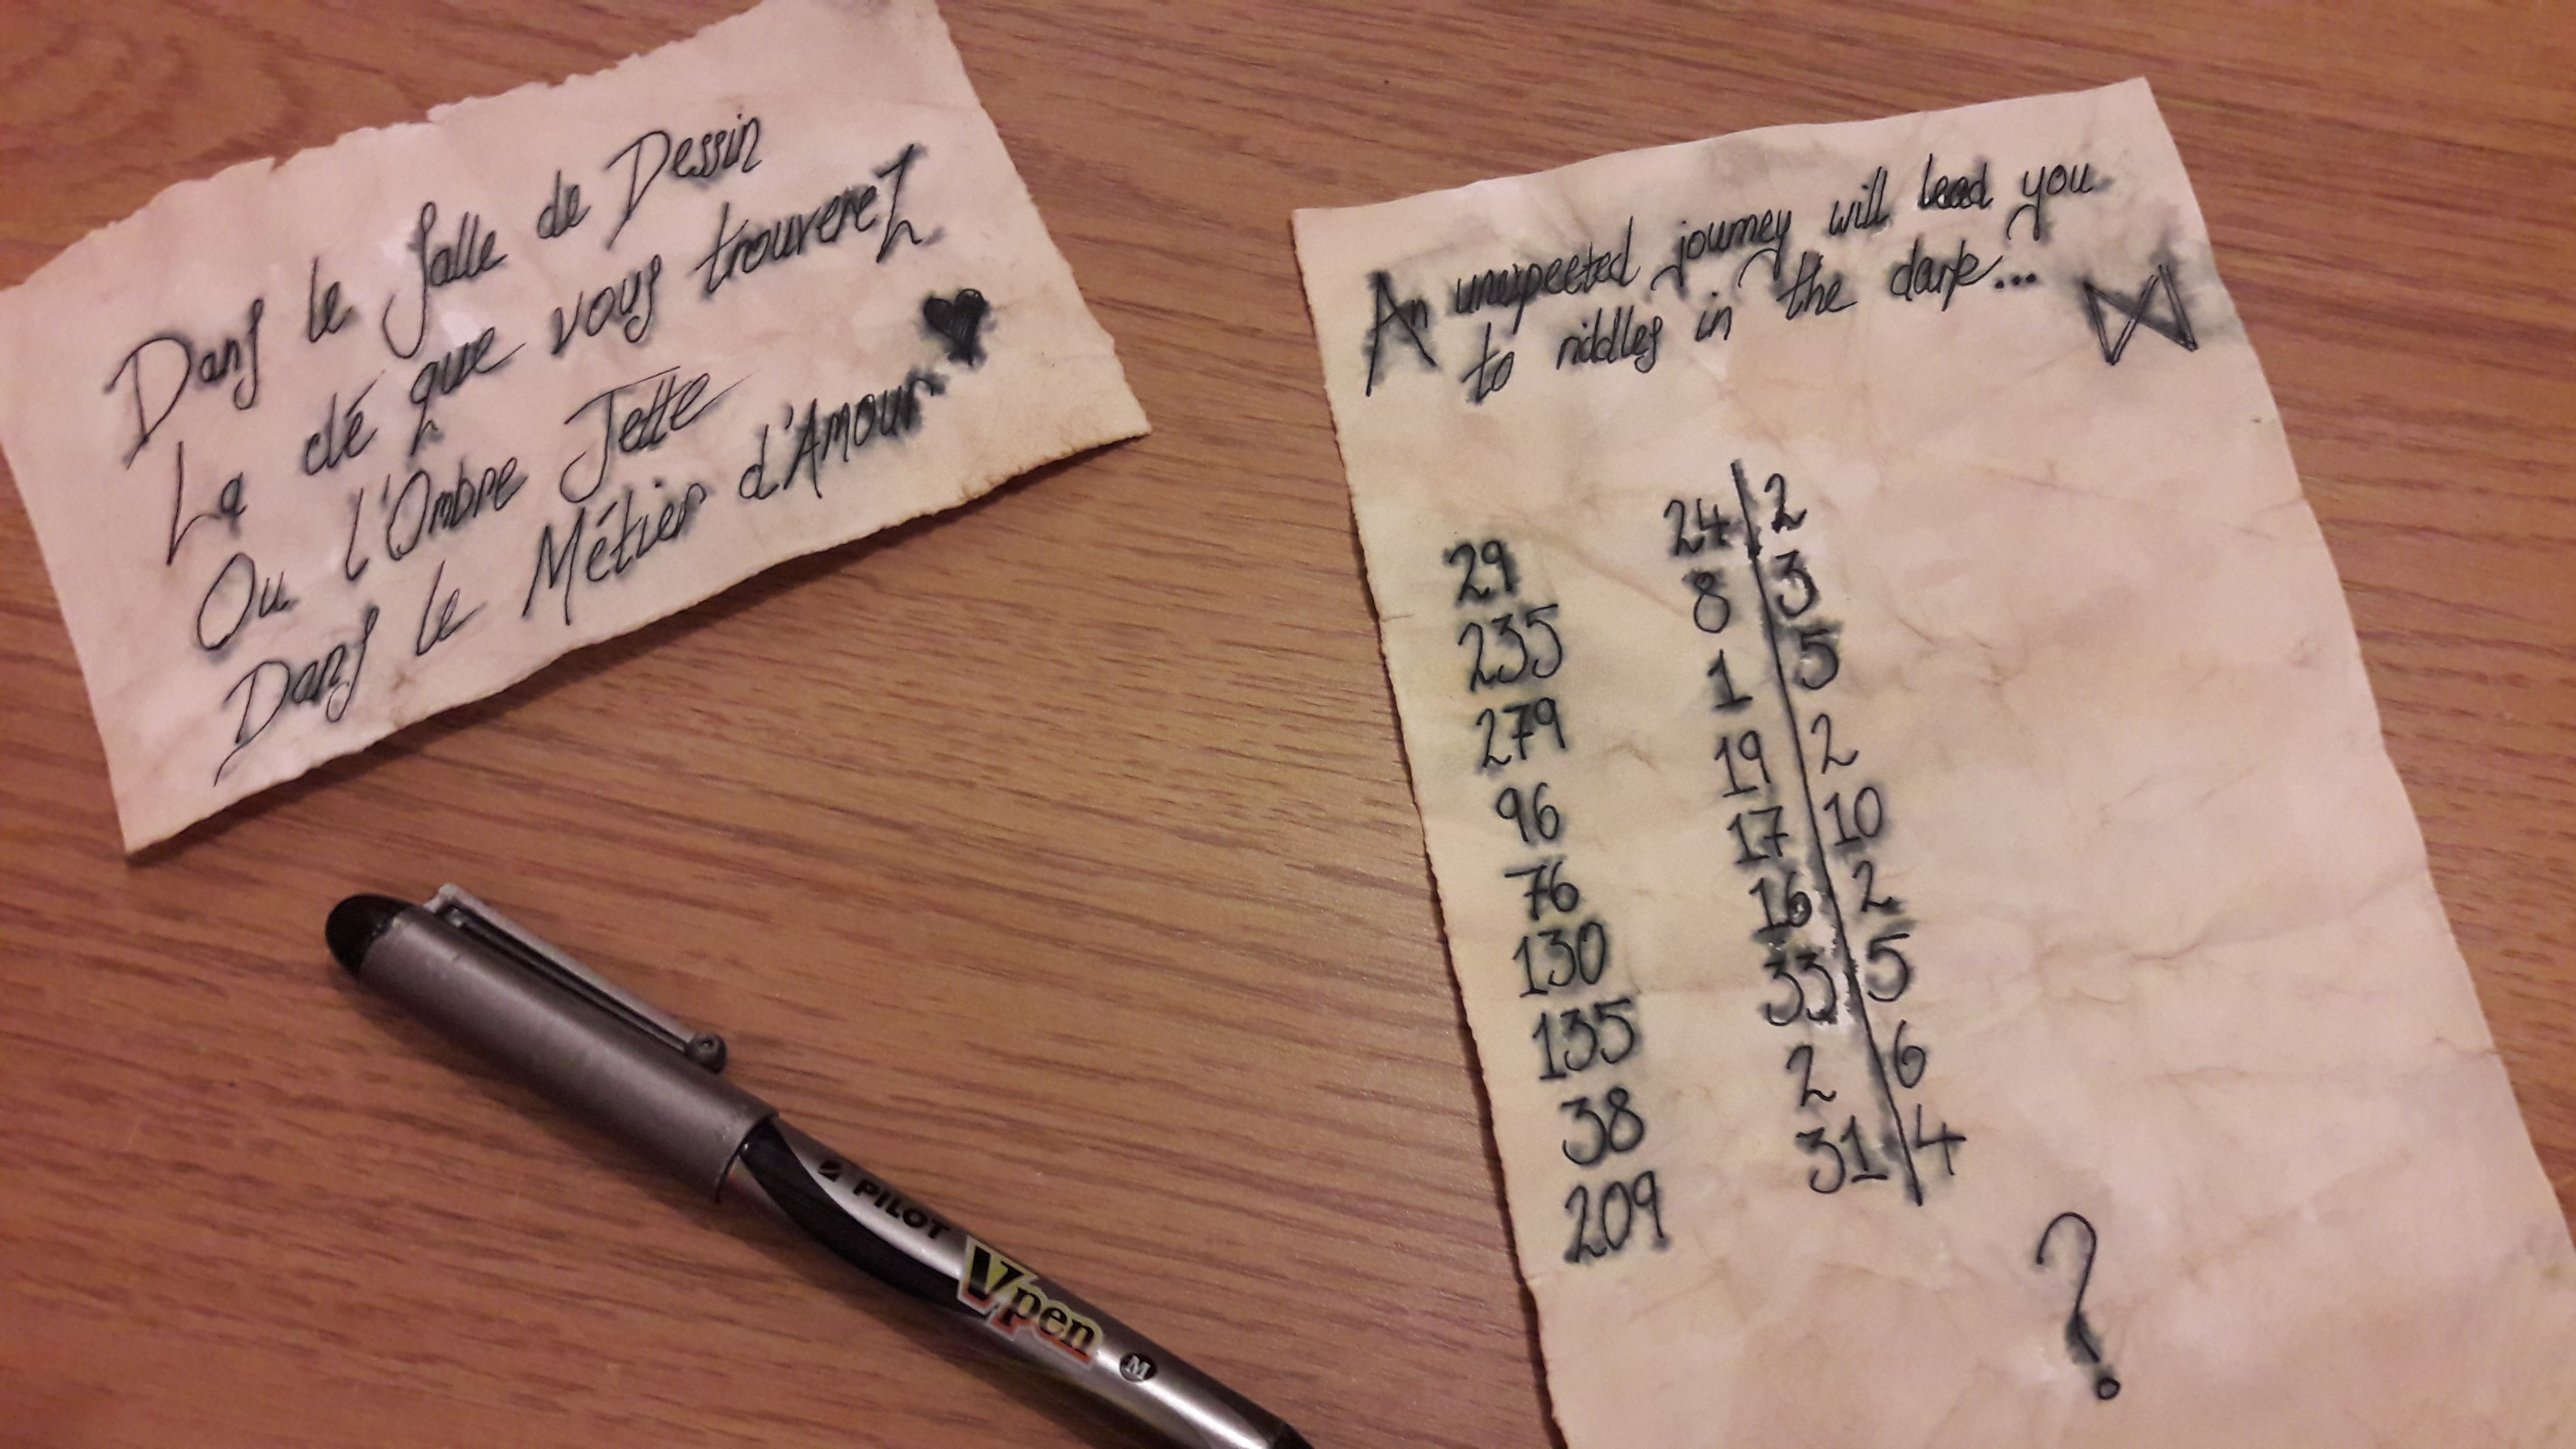 Dans le Salle de Dessin
La clé que vous trouverez
Ou l'Ombre Jette
Dans le Métier d'Amour
An unexpected journey will lead you
to riddles in the dark...
29
235
279
96
76
130
135
38
209
24 2
8 3
1 5
19 2
17 10
16 2
33 5
2 6
31 4
?
PILOT
Vpen
M